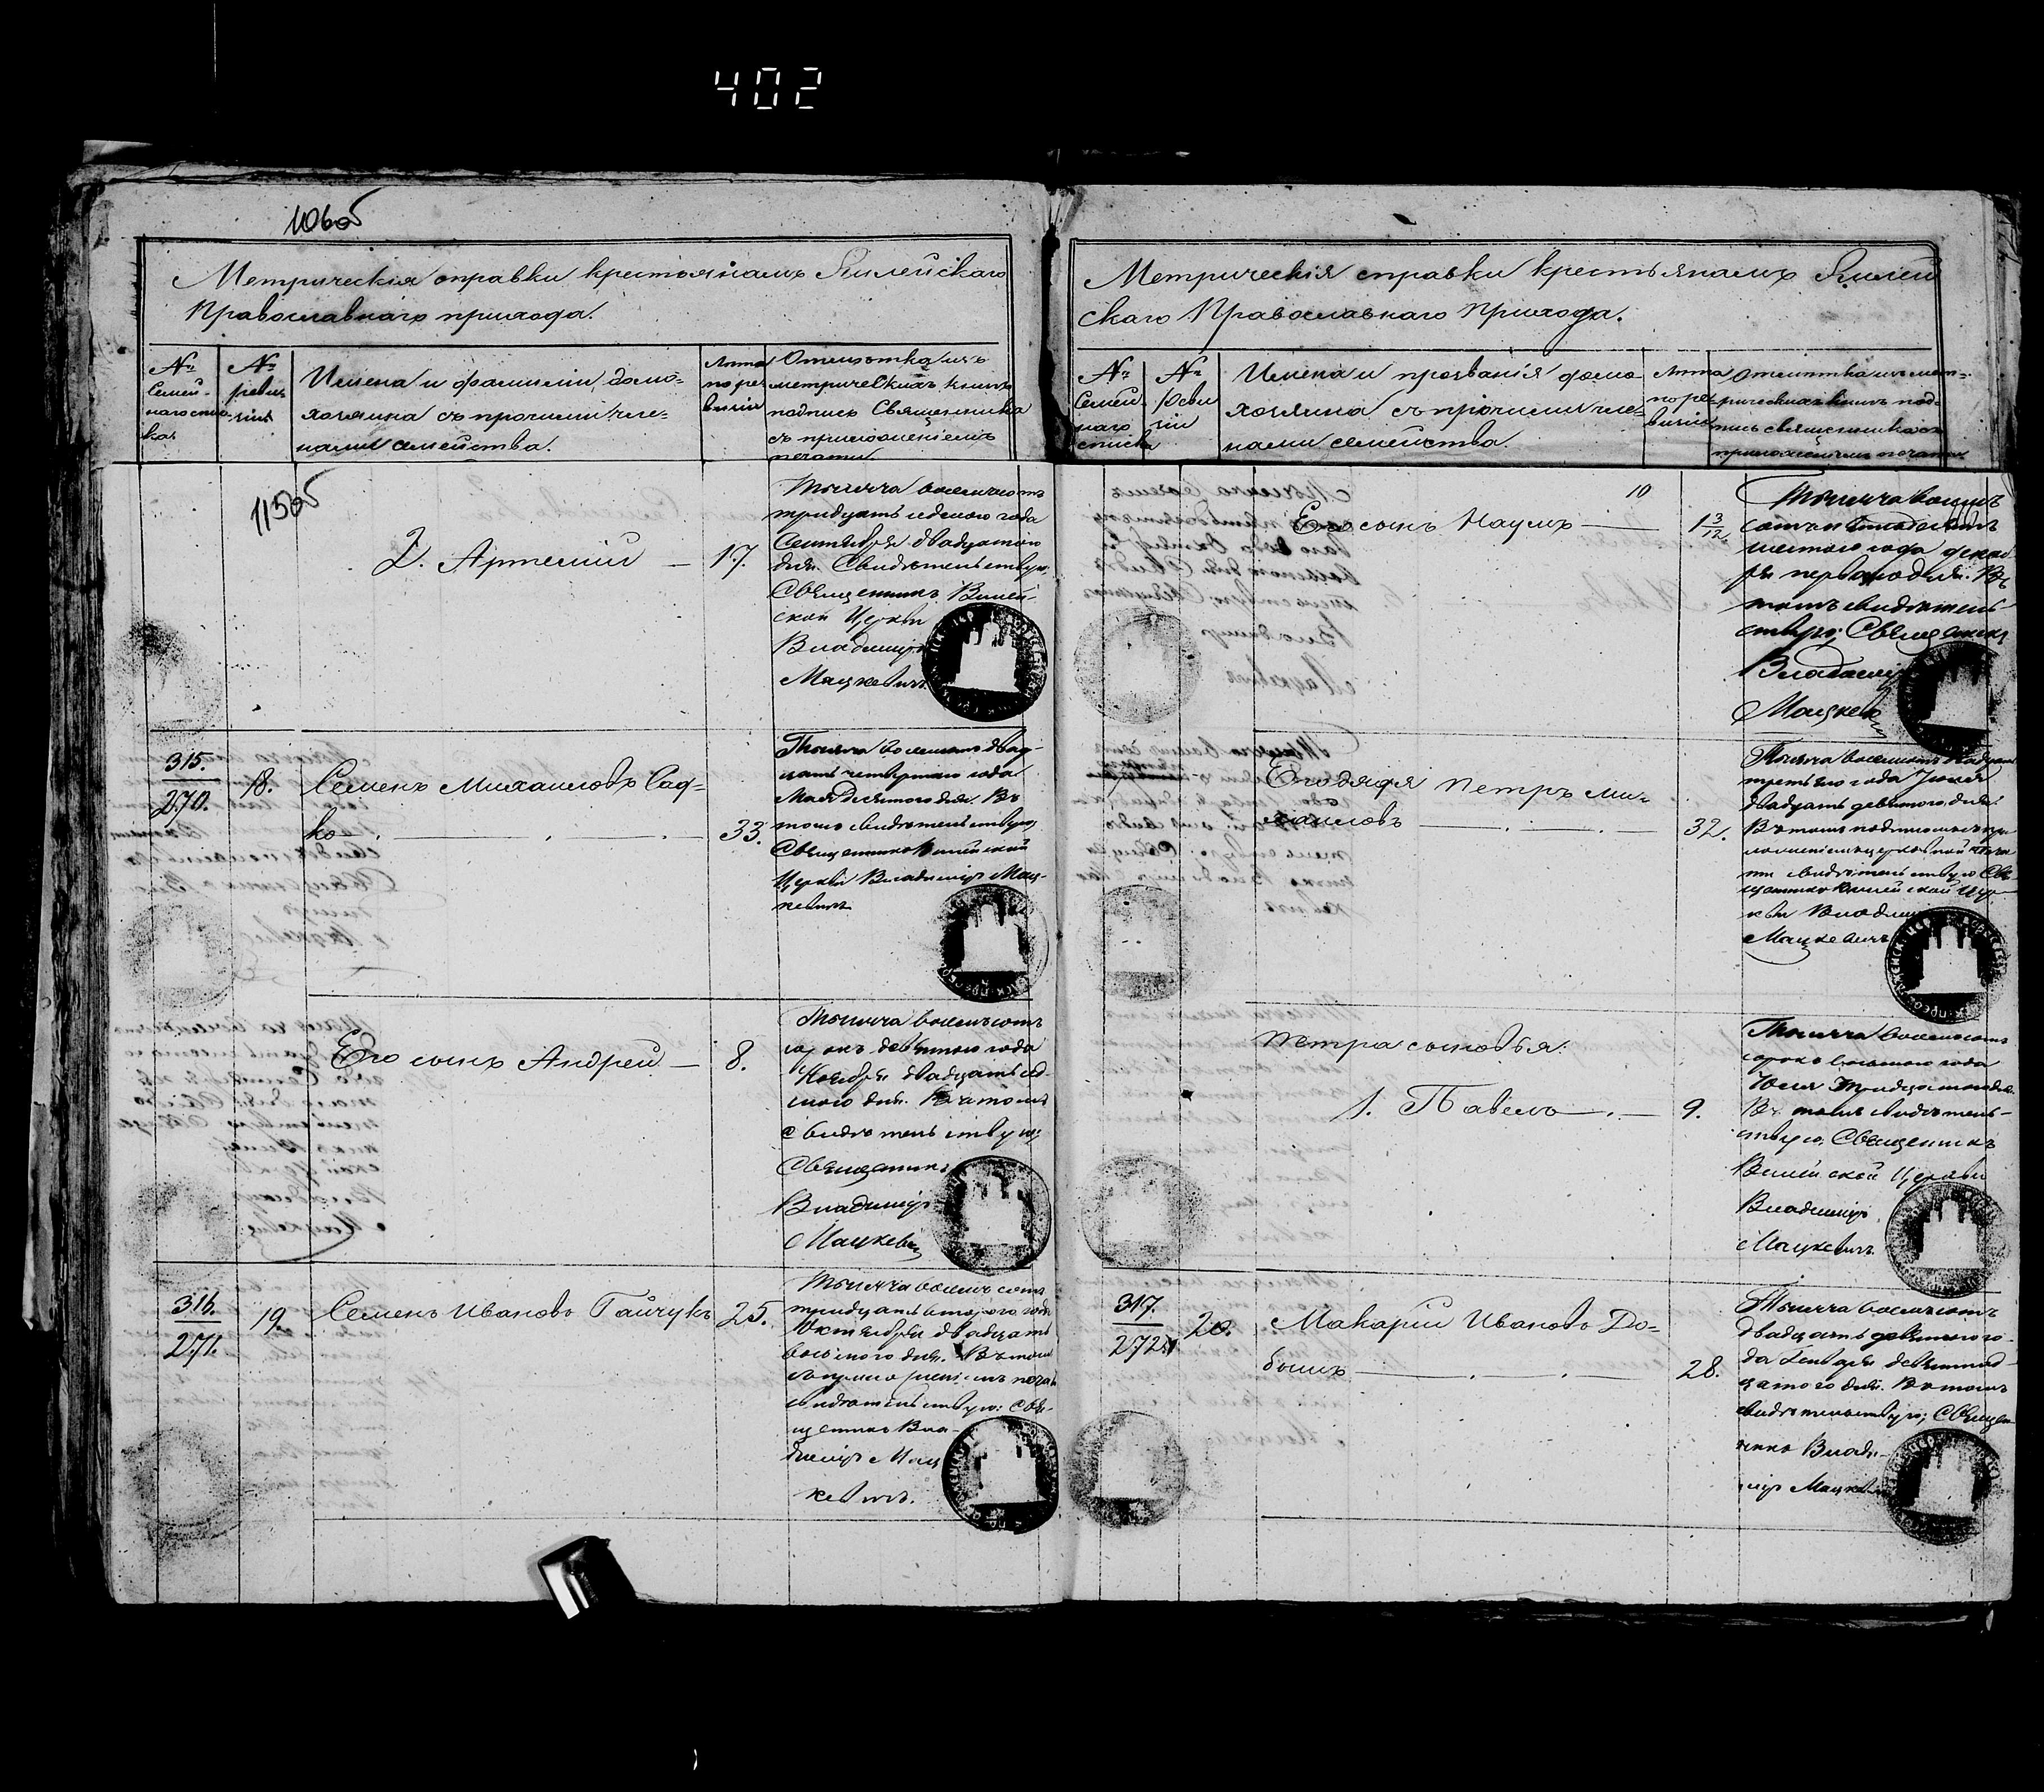 402
106об
Метрическія справки крестьянамъ
Православнаго прихода.
№
Семей-
наго спис-
ка
№
ревиз-
ніи
Имена и фамиліи домо-
хозяина съ прочими чле-
нами семейства.
Лѣта
по ре
визіи
Отмѣтка изъ
метрическихъ книгъ
подпись Священника
съ приложеніемъ
печати.
115об
2. Артемій — 17.
Тысяча восемьсотъ
тридцать седьмого года
Сентября двадцатого
дня. Свидѣтельствую,
Священникъ Вилей-
ской Церкви
Владиміръ
Мацкевичъ
315.
270.
18.
Семенъ Михаиловъ Сад-
ко — 33.
Тысяча восемьсотъ двад-
цать четвертаго года
Мая десятого дня. Въ
томъ свидѣтельствую,
Священникъ Вилейской
Церкви Владиміръ Мац-
кевичъ
Его сынъ Андрей — 8.
Тысяча восемьсотъ
сорокъ девятого года
Ноября двадцать сед-
мого дня. Въ томъ
свидѣтельствую
Священникъ
Владиміръ
Мацкевичъ
316.
271.
19.
Семенъ Ивановъ Гайчукъ 25.
Тысяча восемьсотъ
тридцать второго года
Октября двадцать
восьмого дня. Въ томъ
съ приложеніемъ печати
свидѣтельствую: Свя-
щенникъ Вла-
диміръ Мац
кевичъ.
Метрическія справки крестьянамъ
скаго Православнаго Прихода.
№
Семей
наго
списка
№
Реви
зіи
Имена и прозванія домо
хозяина съ прочими чле-
нами семейства
Лѣта
по ре-
визіи
Отмѣтка изъ мет-
рическихъ книгъ под-
пись священника съ
приложеніемъ печати
10
Его сынъ Наумъ — 1 3/12.
Тысяча восемь
сотъ пятьдесятъ
шестого года декаб
ря первого дня. Въ
томъ свидѣтель-
ствую, Священникъ
Владиміръ
Мацкевичъ
Его дядя Петръ Ми-
хаиловъ — 32.
Тысяча восемьсотъ двадцать
третьяго года Іюня
двадцать девятого дня.
Въ томъ подписомъ съ при
ложеніемъ церковной печа
ти свидѣтельствую Свя
щенникъ Вилейской Цер-
кви Владиміръ
Мацкевичъ
Петра сыновья:
1. Павелъ — 9.
Тысяча восемьсотъ
сорокъ восьмого года
Іюля тридцатого дня
Въ томъ свидѣтель-
ствую, Священникъ
Вилейской Церкви
Владиміръ
Мацкевичъ
317.
272.
20.
Макарій Ивановъ До-
бышъ — 28.
Тысяча восемьсотъ
двадцать девятого го-
да Генваря девятнад-
цатого дня. Въ томъ
свидѣтельствую, Священ
никъ Влади-
міръ Мацкевичъ